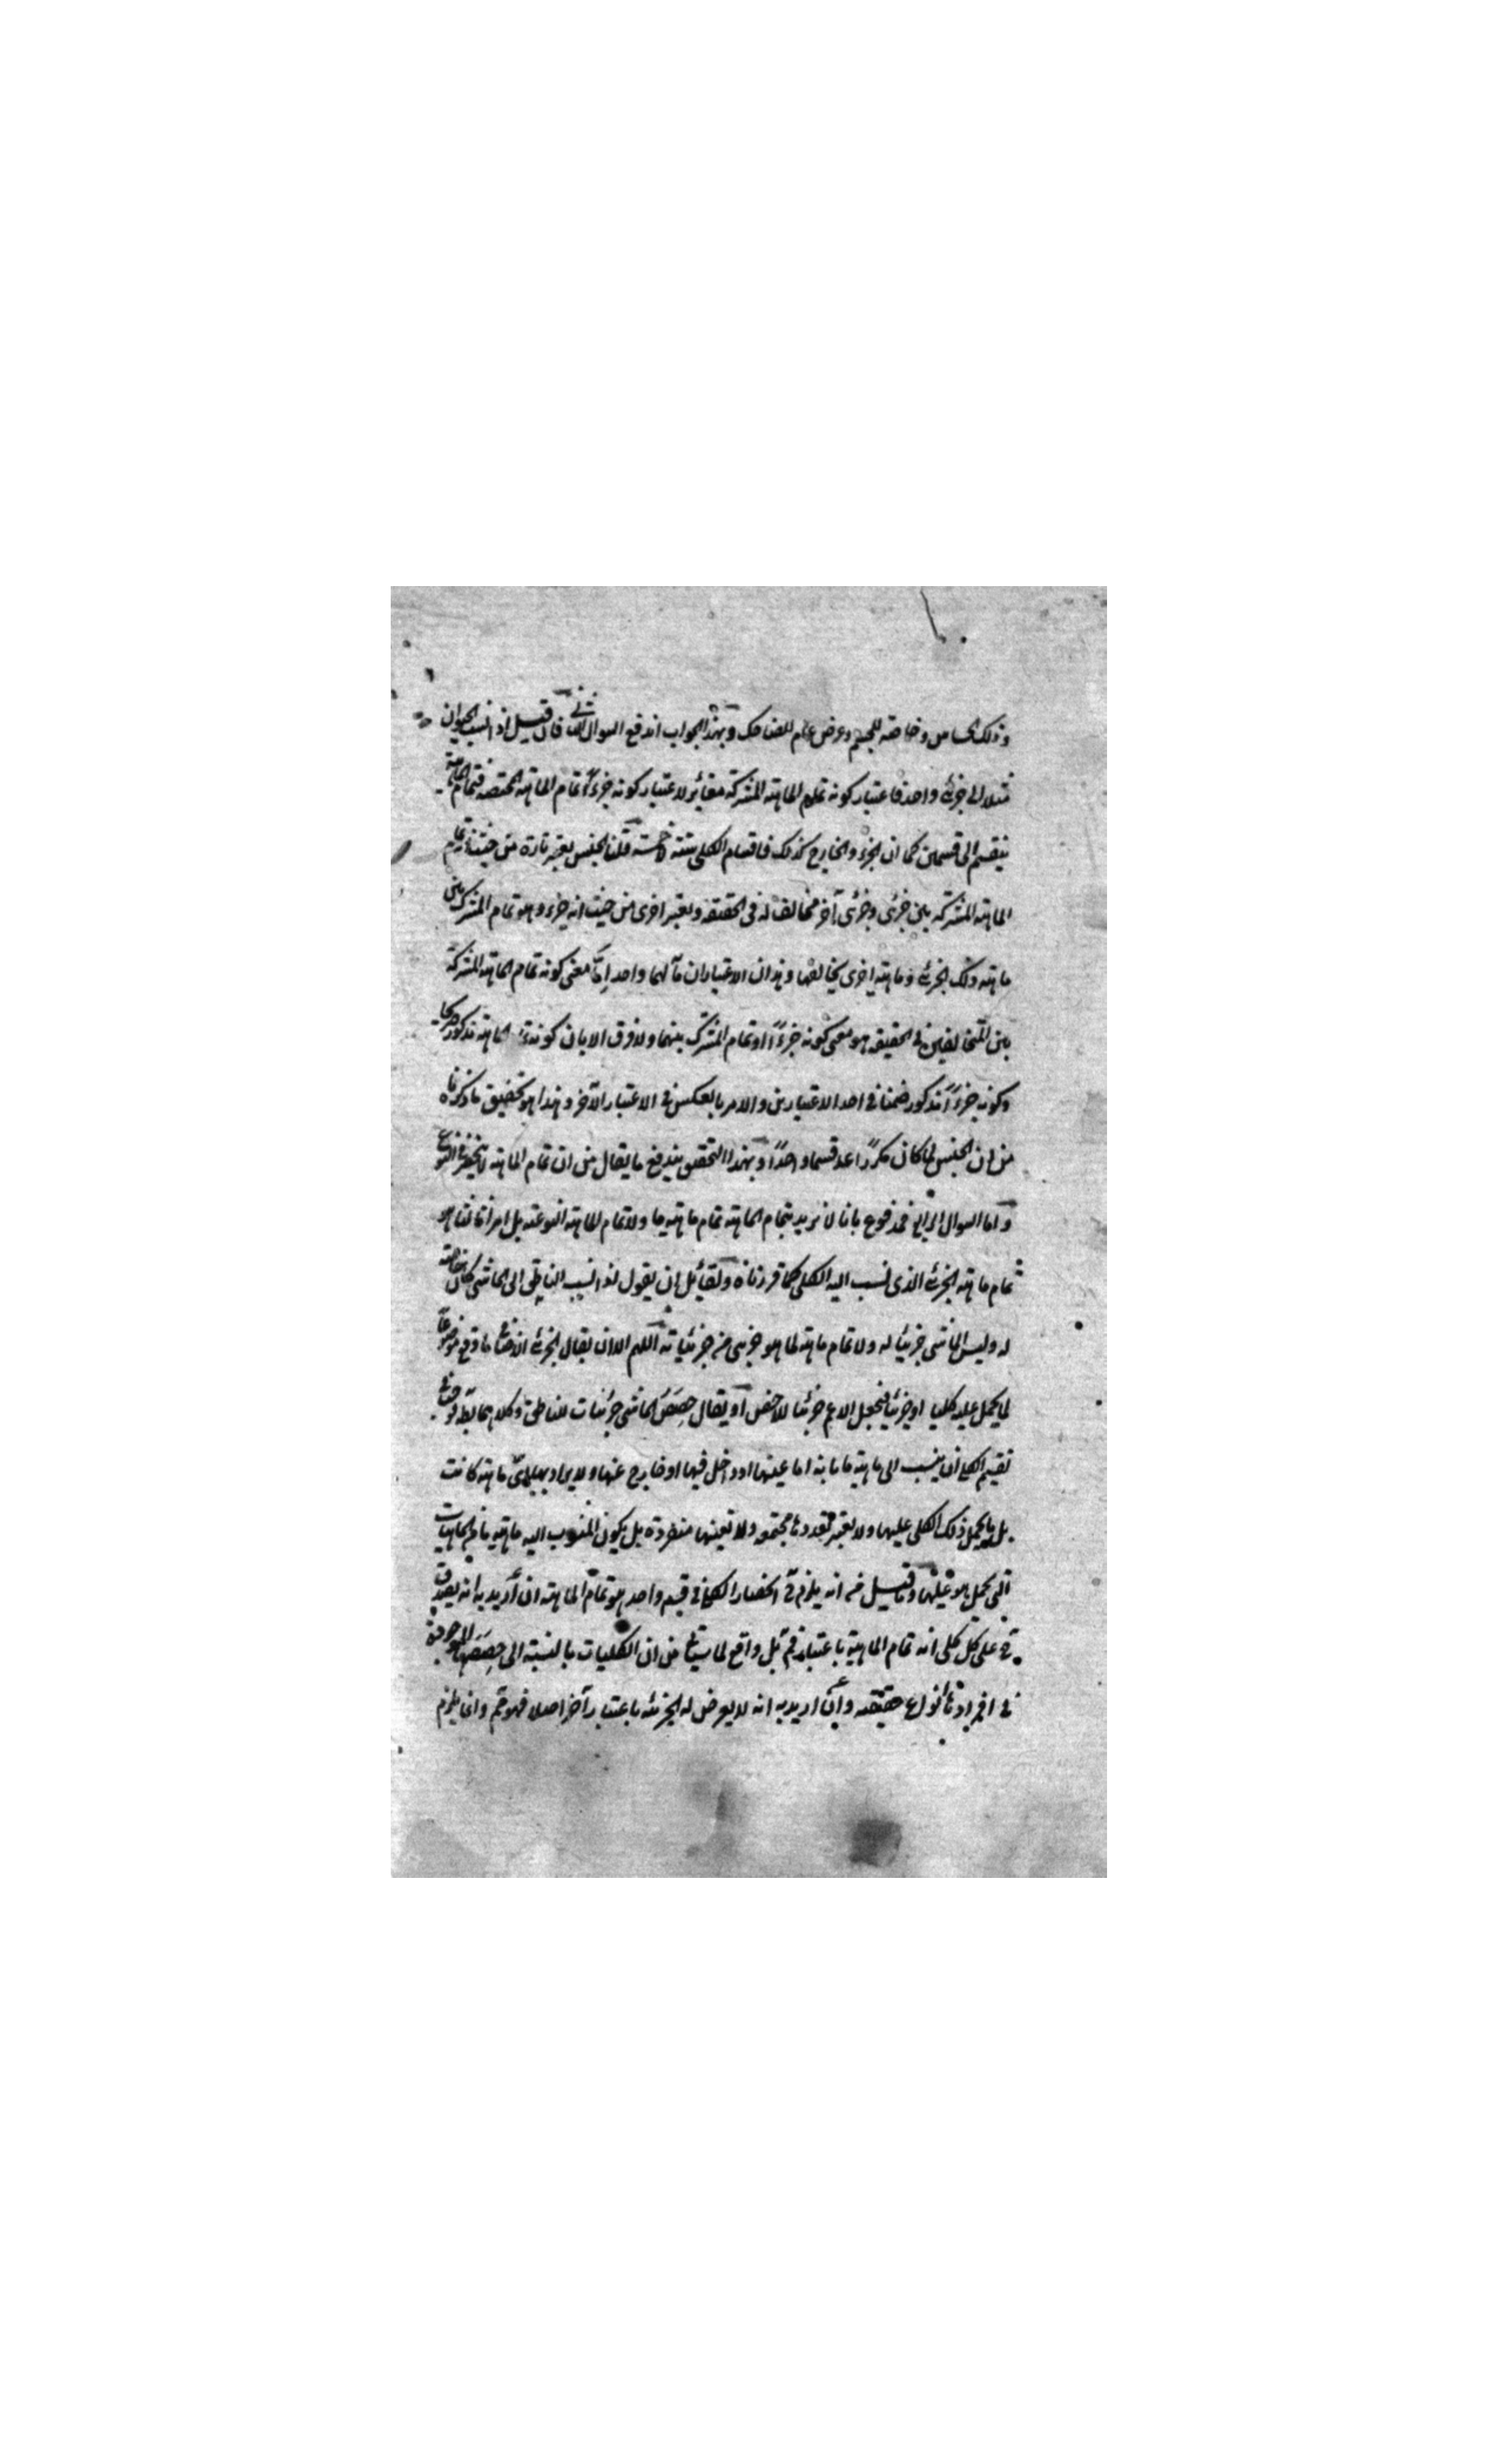 وذلك الحساس وخاصة للجسم وعرض عام للضاحك وبهذا الجواب اندفع السوال الثانى فان قيل اذا نسب الحيوان
مثلا الى جزئى واحد فاعتبار كونه تمام الماهية المشتركة مغاير لاعتبار كونه جزءا لتمام الماهية المختصة فتمام الماهية
ينقسم الى قسمين كما ان الجزء والخارج كذلك فاقسام الكلى ستة لا خمسة قلنا الجنس يعتبر تارة من حيث انه تمام
الماهية المشتركة بين جزئى وجزئى آخر مخالف له فى الحقيقة ويعتبر اخرى من حيث انه جزء وهو تمام المشترك بين
ماهية ذلك الجزئى وماهية اخرى يخالفها وهذان الاعتباران مآلهما واحد اما معنى كونه تمام الماهية المشتركة
بين المتخالفين فى الحقيقة هو معنى كونه جزءا او تمام المشترك بينهما ولا فرق الا بان كونه الماهية مذكور صريحا
وكونه جزءا مذكور ضمنا فى احد الاعتبارين والامر بالعكس فى الاعتبار الآخر وهذا هو تحقيق ما ذكرناه
من ان الجنس لما كان مكررا عد قسما واحدا وبهذا التحقيق يندفع ما يقال من ان تمام الماهية لا ينحصر فى النوع
واما السوال الرابع فمدفوع بانا لا نريد بتمام الماهية تمام ماهية ما ولا تمام الماهية النوعية بل امرا ثالثا هو
تمام ماهية الجزئى الذى نسب اليه الكلى كما قررناه ولقائل ان يقول اذا نسب الناطق الى الماشى كان خاصة
له وليس الماشى جزئيا له ولا تمام ماهية لما هو جزئى من جزئياته اللهم الا ان يقال الجزئى الاضافى ما وقع موضوعا
لما يحمل عليه كليا او جزئيا فيجعل الاعم جزئيا للاخص او يقال حصص الماشى جزئيات للناطق وكلاهما
تقسيم الكلى ان ينسب الى ماهية ما بانه اما عينها او داخل فيها او خارج عنها ولا يراد بها اى ماهية كانت
بل ما يحمل ذلك الكلى عليها ولا يعتبر تعددها مجتمعة ولا تعينها منفردة بل يكون المنسوب اليه ماهية ما من الماهيات
التى يحمل هو عليها وما قيل من انه يلزم ح انحصار الكلى فى قسم واحد هو تمام الماهية ان اريد به انه يصدق
ح على كل كلى انه تمام الماهية باعتبار فم بل واقع لما سيأتى من ان الكليات بالنسبة الى حصصها الموجودة
فى افرادها انواع حقيقية وان اريد به انه لا يعرض له الجزئية باعتبار آخر اصلا فهو مم وانما يلزم